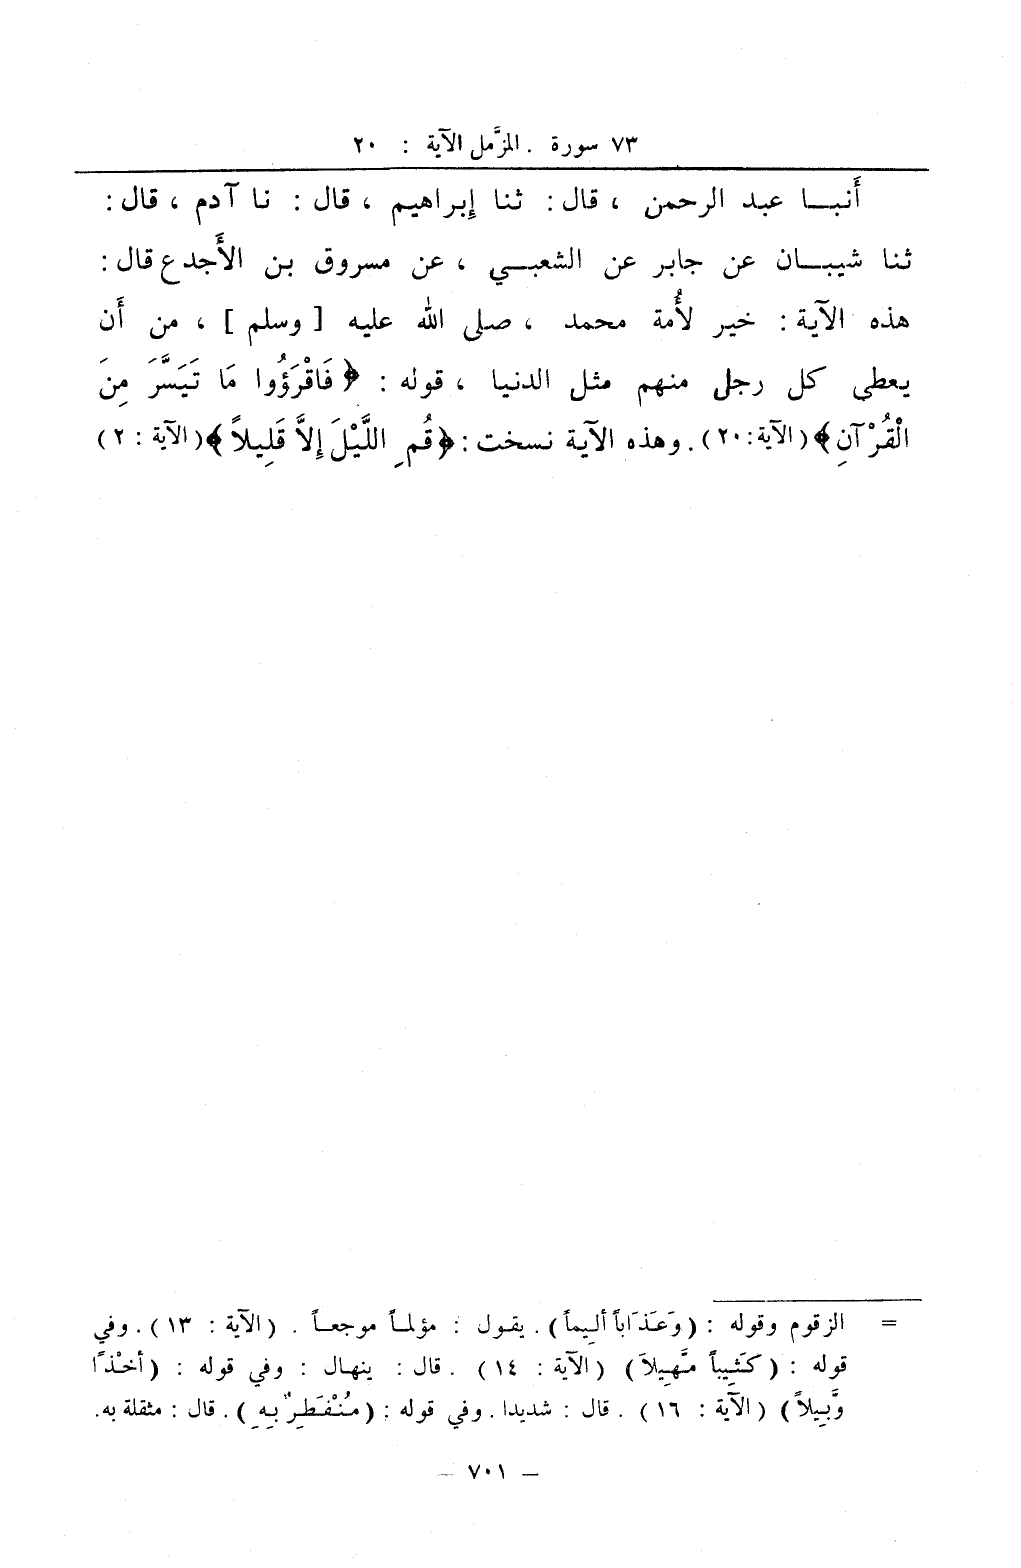 ٧٣ سورة . المزَّمل الآية : ٢٠
أَنبا عبد الرحمن ، قال : ثنا إبراهيم ، قال : نا آدم ، قال :
ثنا شيبان عن جابر عن الشعبي ، عن مسروق بن الأَجدع قال :
هذه الآية : خير لأُمة محمد ، صلى الله عليه [ وسلم ] ، من أَن
يعطى كل رجل منهم مثل الدنيا ، قوله : ﴿ فَاقْرَؤُوا مَا تَيَسَّرَ مِنَ
الْقُرْآنِ ﴾ ( الآية : ٢٠ ) . وهذه الآية نسخت : ﴿ قُمِ اللَّيْلَ إِلاَّ قَلِيلاً ﴾ ( الآية : ٢ )
= الزقوم وقوله : ( وَعَذَاباً أليماً ) . يقول : مؤلماً موجعاً . ( الآية : ١٣ ) . وفي
قوله : ( كَثِيباً مَّهِيلاَ ) ( الآية : ١٤ ) . قال : ينهال : وفي قوله : ( أخْذًا
وَّبِيلاً ) ( الآية : ١٦ ) . قال : شديدا . وفي قوله : ( مُنْفَطِرٌ بِهِ ) . قال : مثقلة به .
– ٧٠١ –